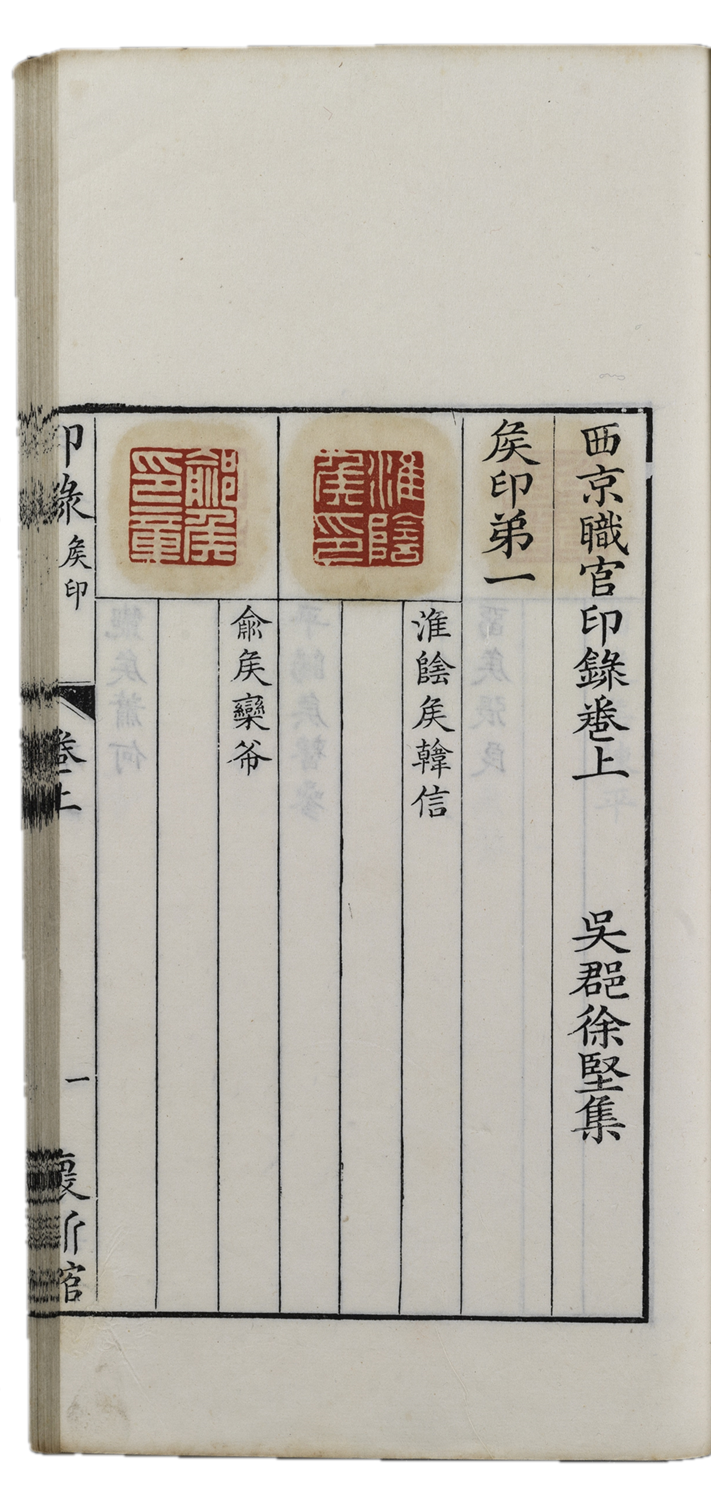 西京職官印錄卷上 吳郡徐堅集
矦印弟一
淮陰矦印
淮陰矦韓信
俞矦欒布
印錄 矦印 卷上 一